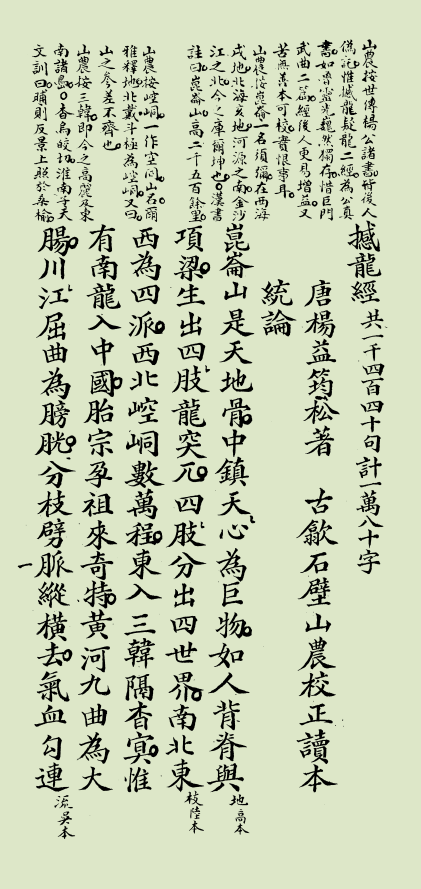 撼龍經 共一千四百四十句計一萬八十字
唐楊益筠松著 古歙石壁山農校正讀本
統論
崑崙山是天地骨中鎮天心為巨物如人背脊與
項梁生出四肢龍突兀四肢分出四世界南北東
西為四派西北崆峒數萬程東入三韓隔杳寞惟
有南龍入中國胎宗孕祖來奇特黃河九曲為大
腸川江屈曲為膀胱分枝劈脈縱橫去氣血勾連
地高本
枝陸本
流吳本
山農按世傳楊公諸書許後人
偽託惟撼龍疑龍二經為公真
書如魯靈光巍然獨存惜巨門
武曲二篇經後人更易增益又
苦無善本可校實恨事耳
山農按崑崙一名須彌在西海
戌地北海亥地河源之南金沙
江之北今之庫爾坤也漢書
註曰崑崙山高二千五百餘里
山農按崆峒一作空同山名爾
雅釋地北戴斗極為崆峒又曰
山之參差不齊也
山農按三韓即今之高麗及東
南諸島杳烏皎切淮南子天
文訓曰晡則反景上照於桑榆